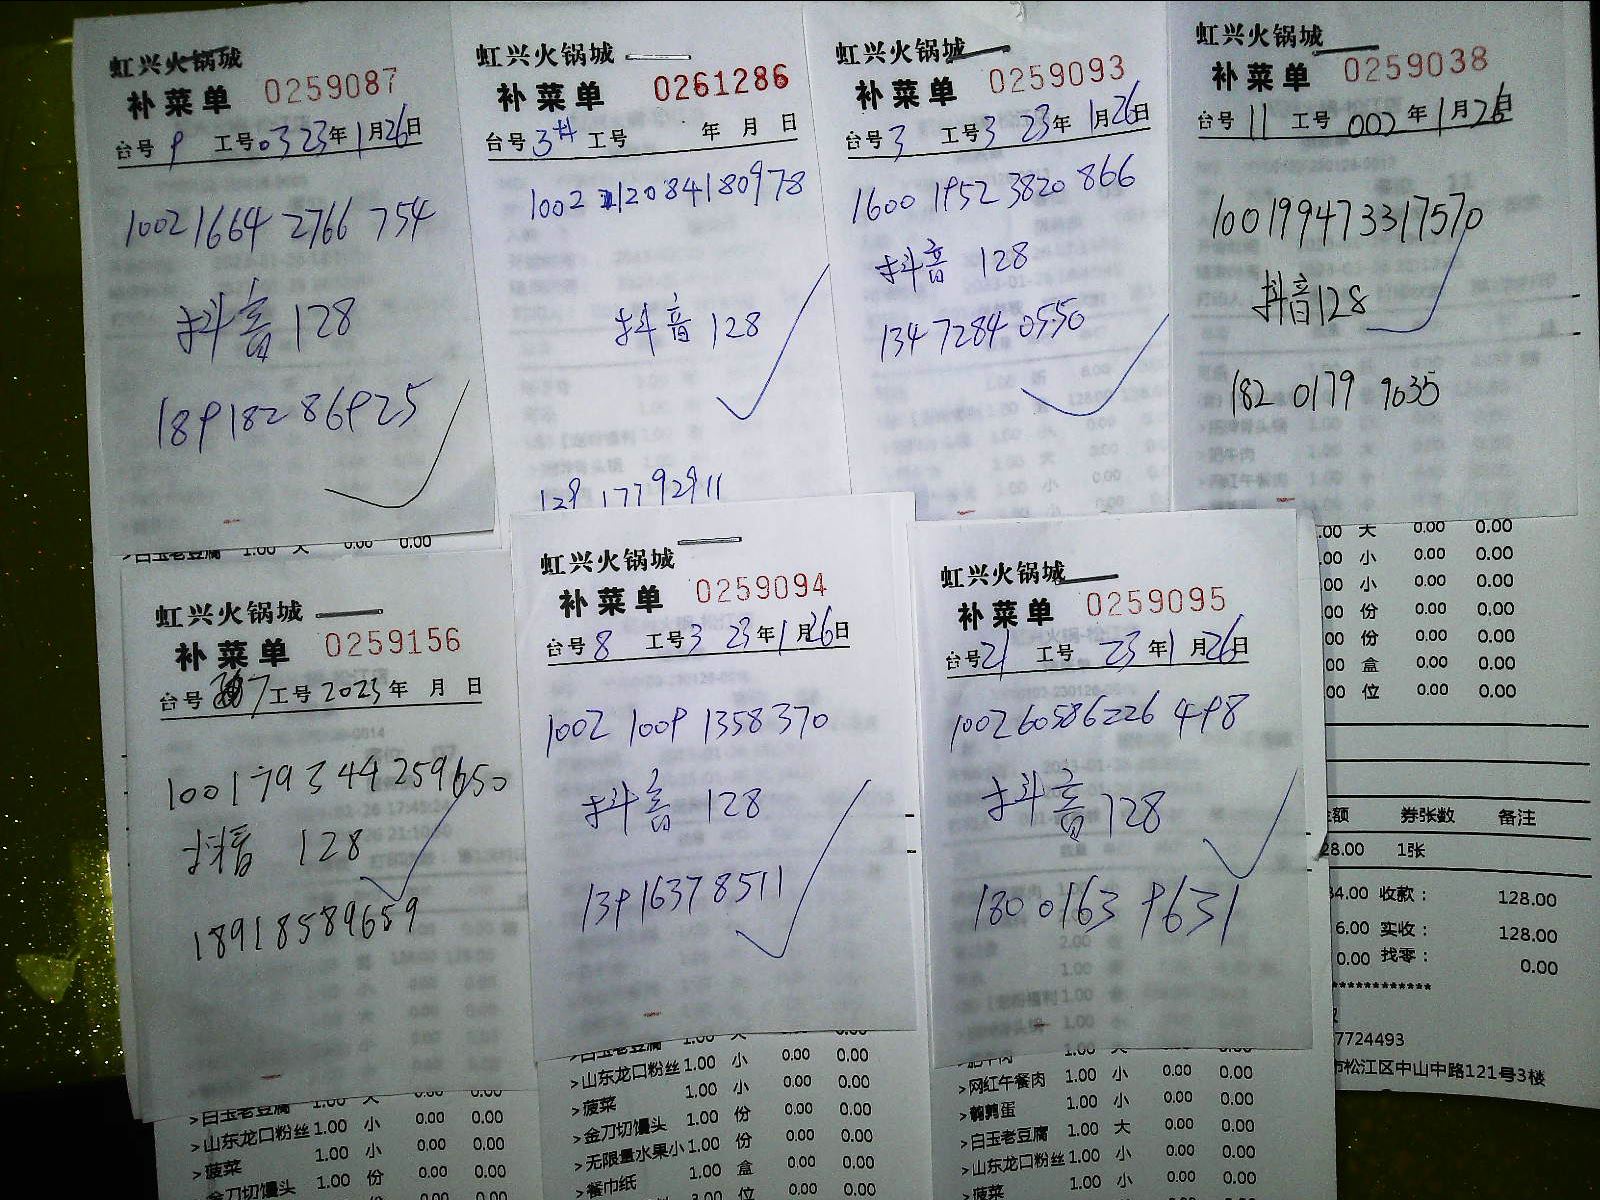 虹兴火锅城
补菜单 0259087
台号 9 工号 03 23年1月26日
1002 1664 2766 754
抖音 128
189182 86925
虹兴火锅城
补菜单 0261286
台号 3# 工号 年 月 日
1002 11208418 0978
抖音 128
17792911
虹兴火锅城
补菜单 0259093
台号 3 工号 3 23年1月26日
1600 1952 3820 866
抖音 128
134 7284 0550
虹兴火锅城
补菜单 0259038
台号 11 工号 002年1月26日
100199473317570
抖音128
182 0179 9635
>白玉老豆腐 1.00 大 0.00 0.00
虹兴火锅城
补菜单 0259156
台号 7 工号 2023年 月 日
100179344259650
抖音 128
18918589659
虹兴火锅城
补菜单 0259094
台号 8 工号 3 23年1月26日
1002 1009 1358370
抖音 128
13916378511
虹兴火锅城
补菜单 0259095
台号 21 工号 23年1月26日
100260586226 498
抖音 128
180 0163 9631
.00 大 0.00 0.00
.00 小 0.00 0.00
.00 小 0.00 0.00
.00 份 0.00 0.00
.00 份 0.00 0.00
.00 盒 0.00 0.00
.00 位 0.00 0.00
金额 券张数 备注
28.00 1张
34.00 收款： 128.00
6.00 实收： 128.00
0.00 找零： 0.00
*************
7724493
市松江区中山中路121号3楼
>白玉老豆腐 1.00 大 0.00 0.00
>山东龙口粉丝 1.00 小 0.00 0.00
>菠菜 1.00 小 0.00 0.00
金刀切馒头 1.00 份 0.00 0.00
>白玉老豆腐 1.00 大 0.00 0.00
>山东龙口粉丝 1.00 小 0.00 0.00
>菠菜 1.00 小 0.00 0.00
>金刀切馒头 1.00 份 0.00 0.00
>无限量水果小 1.00 份 0.00 0.00
>餐巾纸 1.00 盒 0.00 0.00
位 0.00 0.00
>肥牛肉 1.00 大 0.00 0.00
>网红午餐肉 1.00 小 0.00 0.00
>鹌鹑蛋 1.00 小 0.00 0.00
>白玉老豆腐 1.00 大 0.00 0.00
>山东龙口粉丝 1.00 小 0.00 0.00
>菠菜 1.00 小 0.00 0.00